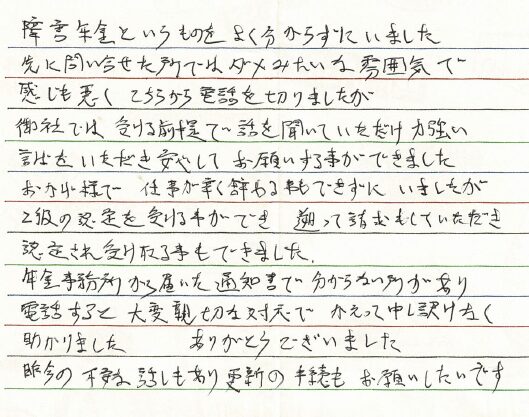 障害年金というものをよく分からずにいました
先に問い合せた所ではダメみたいな雰囲気で
感じも悪くこちらから電話を切りましたが
御社では受ける前提で話を聞いていただけ力強い
言葉をいただき安心してお願いする事ができました
おかげ様で 仕事が辛く辞める事もできずにいましたが
2級の認定を受ける事ができ 遡って請求もしていただき
認定され受け取る事もできました.
年金事務所から届いた通知書で分からない所があり
電話すると大変親切な対応で かえって申し訳けなく
助かりました ありがとうございました
昨今の 話しもあり更新の手続もお願いしたいです